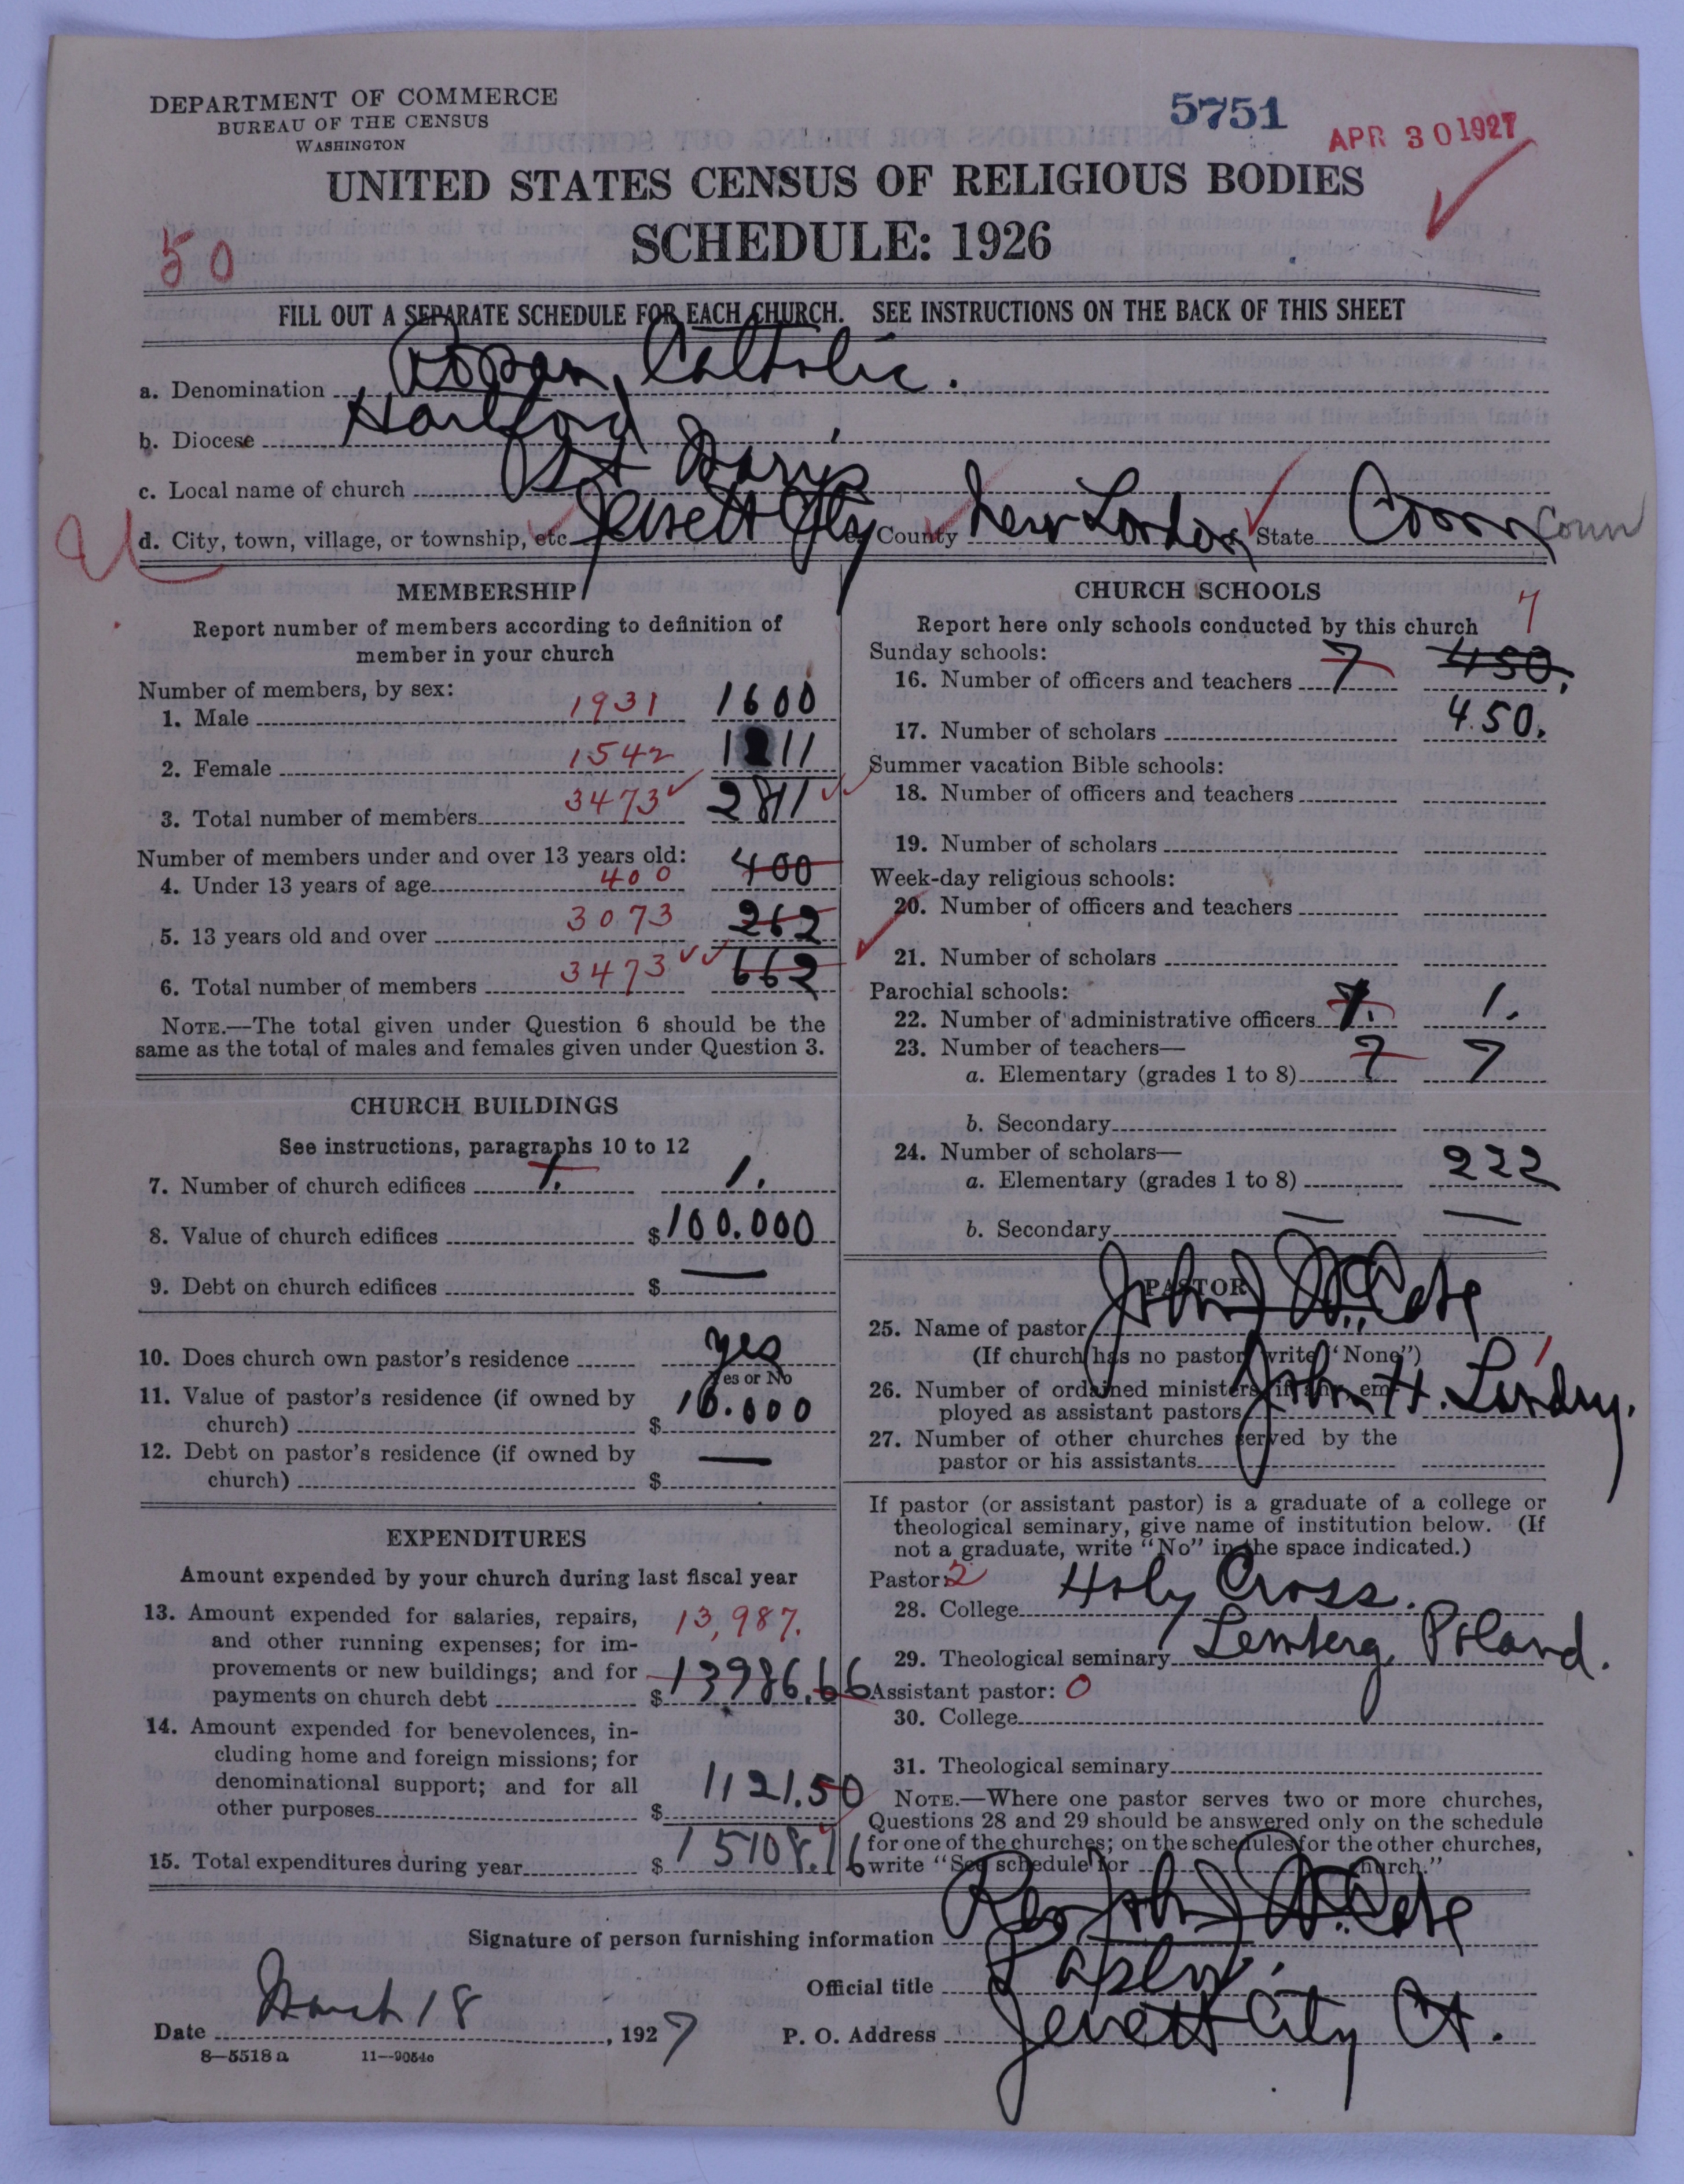 DEPARTMENT OF COMMERCE
BUREAU OF THE CENSUS
WASHINGTON
5751
APR 30 1927
UNITED STATES CENSUS OF RELIGIOUS BODIES
SCHEDULE: 1926
50
FILL OUT A SEPARATE SCHEDULE FOR EACH CHURCH. SEE INSTRUCTIONS ON THE BACK OF THIS SHEET
a. Denomination Roman Catholic.
b. Diocese Hartford
c. Local name of church St Marys
d. City, town, village, or township, etc. Jewett City County New London State Conn Conn
MEMBERSHIP
Report number of members according to definition of
member in your church
Number of members, by sex:
1. Male 1931 1600
2. Female 1542 1211
3. Total number of members 3473 2811
Number of members under and over 13 years old:
4. Under 13 years of age 400 400
5. 13 years old and over 3073 262
6. Total number of members 3473 662
NOTE.—The total given under Question 6 should be the
same as the total of males and females given under Question 3.
CHURCH BUILDINGS
See instructions, paragraphs 10 to 12
7. Number of church edifices 1. 1.
8. Value of church edifices $100.000
9. Debt on church edifices $ —
10. Does church own pastor's residence yes
Yes or No
11. Value of pastor's residence (if owned by
church) $ 10.000
12. Debt on pastor's residence (if owned by
church) $ —
EXPENDITURES
Amount expended by your church during last fiscal year
13. Amount expended for salaries, repairs, 13,987.
and other running expenses; for im-
provements or new buildings; and for
payments on church debt $ 13986.66
14. Amount expended for benevolences, in-
cluding home and foreign missions; for
denominational support; and for all
other purposes $ 1121.50
15. Total expenditures during year $ 15108.16
CHURCH SCHOOLS
Report here only schools conducted by this church 7
Sunday schools:
16. Number of officers and teachers 7 450.
17. Number of scholars 450.
Summer vacation Bible schools:
18. Number of officers and teachers
19. Number of scholars
Week-day religious schools:
20. Number of officers and teachers
21. Number of scholars
Parochial schools:
22. Number of administrative officers 1. 1.
23. Number of teachers—
a. Elementary (grades 1 to 8) 7 7
b. Secondary
24. Number of scholars—
a. Elementary (grades 1 to 8) 222
b. Secondary — —
PASTOR
25. Name of pastor John J McCabe
(If church has no pastor write "None") 1
26. Number of ordained ministers, if any, em-
ployed as assistant pastors John H. Landry.
27. Number of other churches served by the
pastor or his assistants
If pastor (or assistant pastor) is a graduate of a college or
theological seminary, give name of institution below. (If
not a graduate, write "No" in the space indicated.)
Pastor: 2
28. College Holy Cross.
29. Theological seminary Lemberg, Poland.
Assistant pastor: 0
30. College
31. Theological seminary
NOTE.—Where one pastor serves two or more churches,
Questions 28 and 29 should be answered only on the schedule
for one of the churches; on the schedules for the other churches,
write "See schedule for church."
Signature of person furnishing information Rev John J McCabe
Official title Pastor.
Date March 18, 1927 P. O. Address Jewett City Ct.
8—5518 a 11—9054c